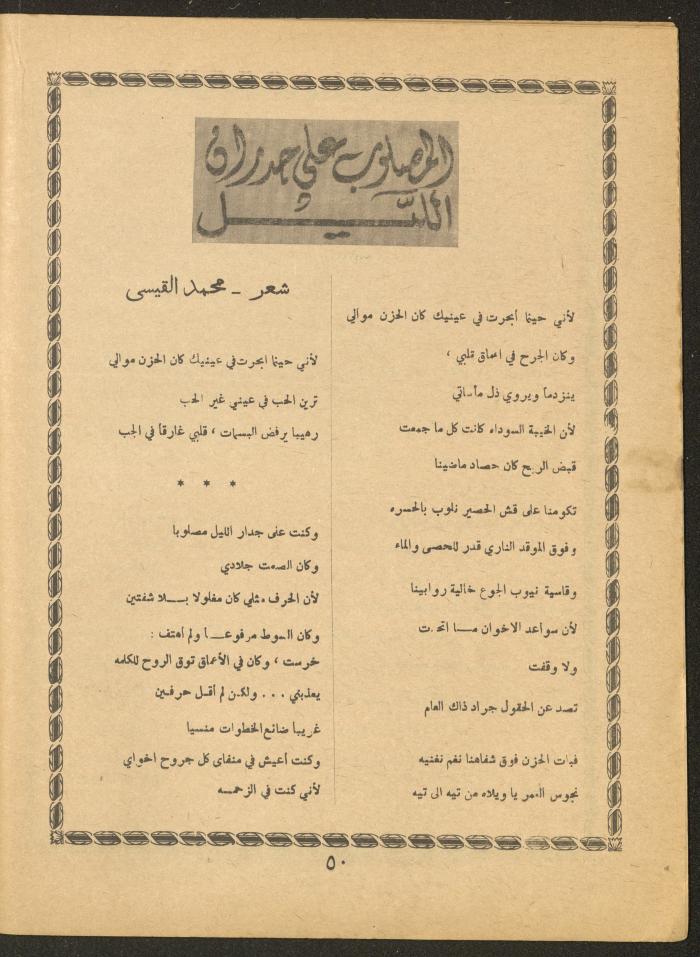 المصلوب على جدران
الليل
شعر - محمد القيسى
لأني حينما أبحرت في عينيك كان الحزن موالي
وكان الجرح في اعماق قلبي ،
ينزدماً ويروي ذل مأساتي
لأن الخيبة السوداء كانت كل ما جمعت
قبض الريح كان حصاد ماضينا
تكومنا على قش الحصير نلوب بالحسره
وفوق الموقد الناري قدر للحصى والماء
وقاسية نيوب الجوع خالية روابينا
لأن سواعد الاخوان مــا اتحدت
ولا وقفت
تصد عن الحقول جراد ذاك العام
فبات الحزن فوق شفاهنا نغم نغنيه
نجوس العمر يا ويلاه من تيه الى تيه
لأني حينما ابحرت في عينيك كان الحزن موالي
ترين الحب في عيني غير الحب
رهيبا يرفض البسمات ، قلبي غارقاً في الجب
* * *
وكنت على جدار الليل مصلوبا
وكان الصمت جلادي
لأن الحرف مثلي كان مغلولا بـــلا شفتين
وكان السوط مرفوعــا ولم اهتف :
خرست ، وكان في الأعماق توق الروح للكلمه
يعذبني . . . ولكن لم أقـل حرفـين
غريباً ضائع الخطوات منسيا
وكنت أعيش في منفاي كل جروح اخواي
لأني كنت في الزحمـه
٥٠